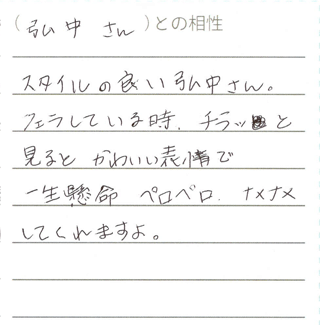 （弘中 さん）との相性
スタイルの良い弘中さん。
フェラしている時、チラッと
見ると かわいい表情で
一生懸命 ペロペロ、ナメナメ
してくれますよ。